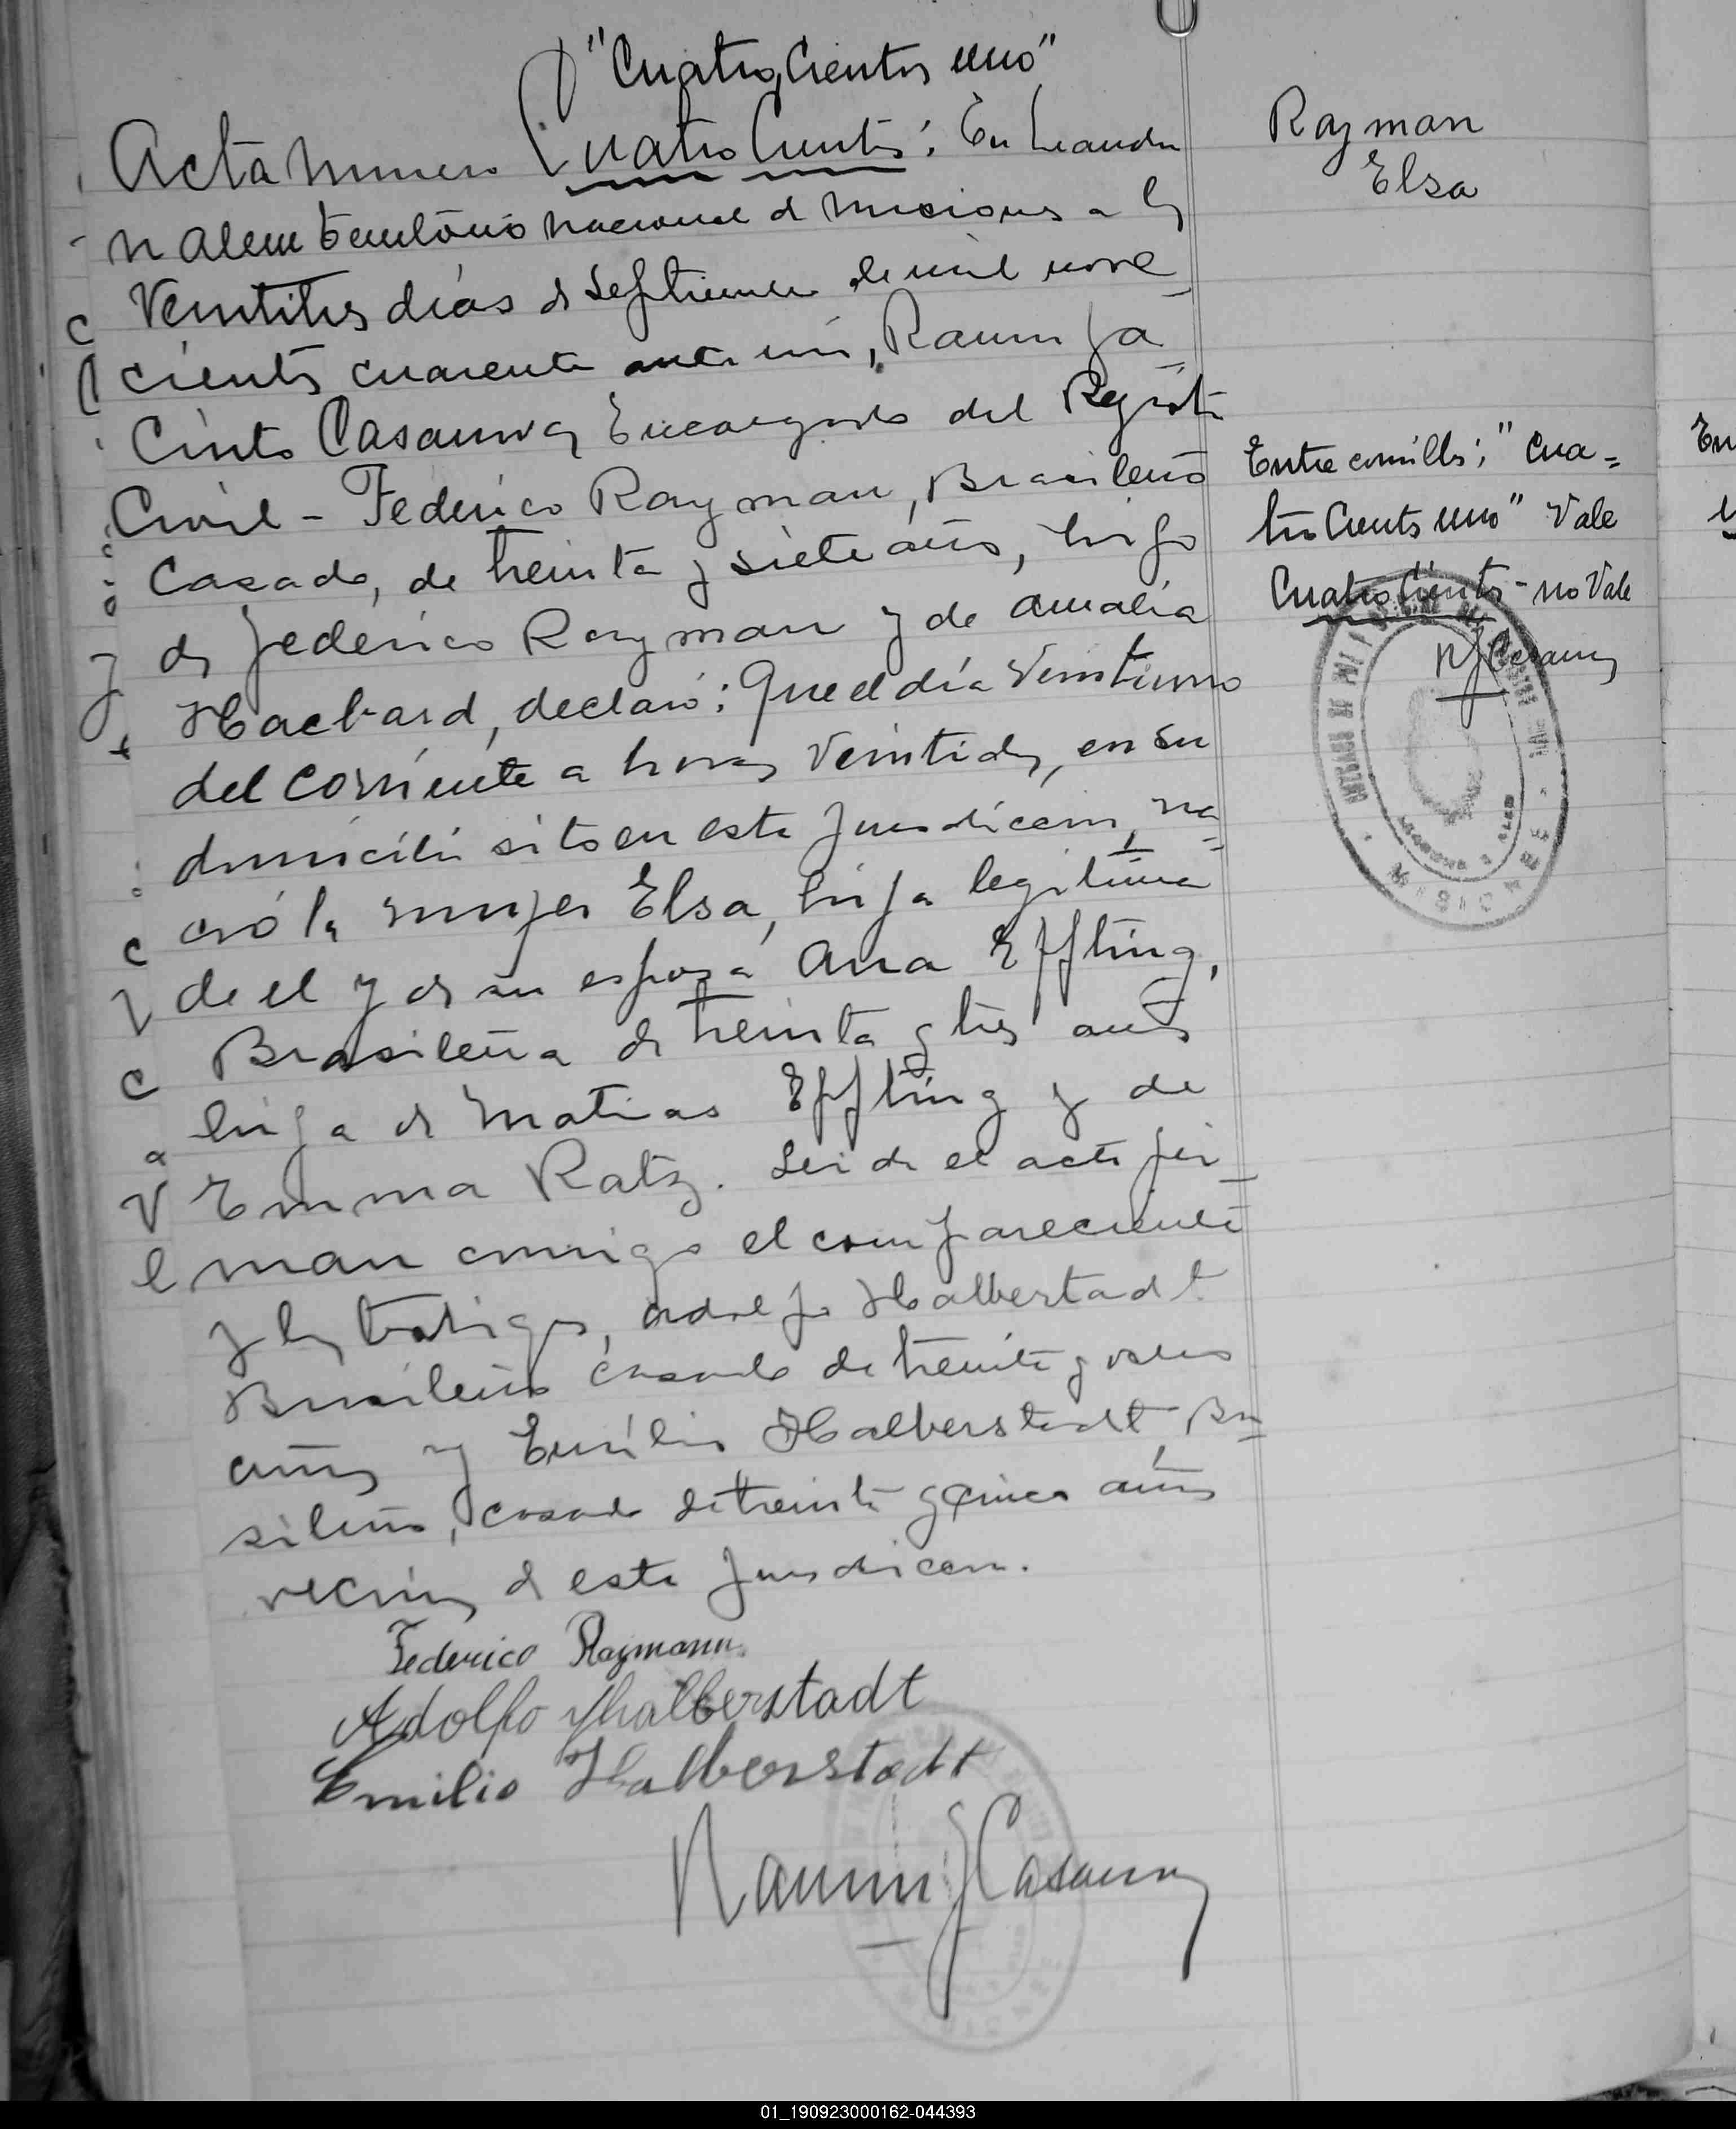 "Cuatro Cientos uno"
Acta Numero Cuatro Cientos: En Leandro
N Alem territorio nacional de Misiones a los
Veintitres días de Septiembre de mil nove_
cientos cuarenta ante mi, Ramon Ja_
cinto Casanova, Encargado del Registro
Civil - Federico Rayman, Brasileño
Casado, de treinta y siete años, hijo
de Federico Rayman y de Amalia
Hackbard, declaró: Que el día Veintiuno
del corriente a horas Veintidos, en su
domicilio sito en esta Jurisdiccion, na=
ció la mujer Elsa, hija legitima
de el y de su esposa Ana Effting,
Brasileña de treinta y tres años
hija de Matias Effting y de
Emma Ratz. Leida el acta fir_
man conmigo el compareciente
y los testigos, Adolfo Halbertadt
Brasileño casado de treinta y ocho
años y Emilio Halberstadt, Bra=
sileño, casado de treinta y cinco años
vecinos de esta Jurisdiccion.
Federico Raymann
Adolfo Halberstadt
Emilio Halberstadt
Ramon J Casanova
Rayman
Elsa
Entre comillas: "Cua=
tro Cientos uno" Vale
Cuatro Cientos - no Vale
RJCasanova
MISIONES
01_190923000162-044393